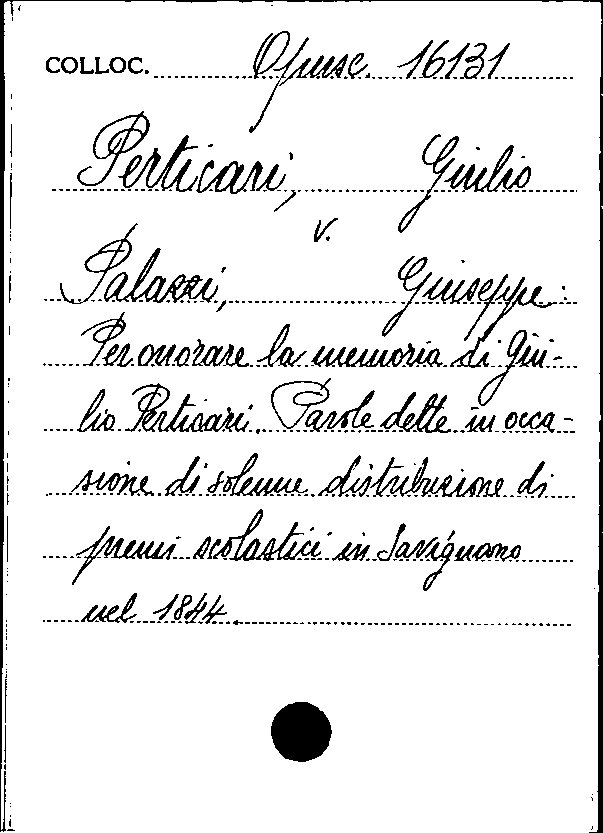 COLLOC. Opusc. 16131
Perticari, Giulio
v.
Palazzi, Giuseppe:
Per onorare la memoria di Giu-
lio Perticari. Parole dette in occa-
sione di solenne distribuzione di
premi scolastici in Savignano
nel 1844.